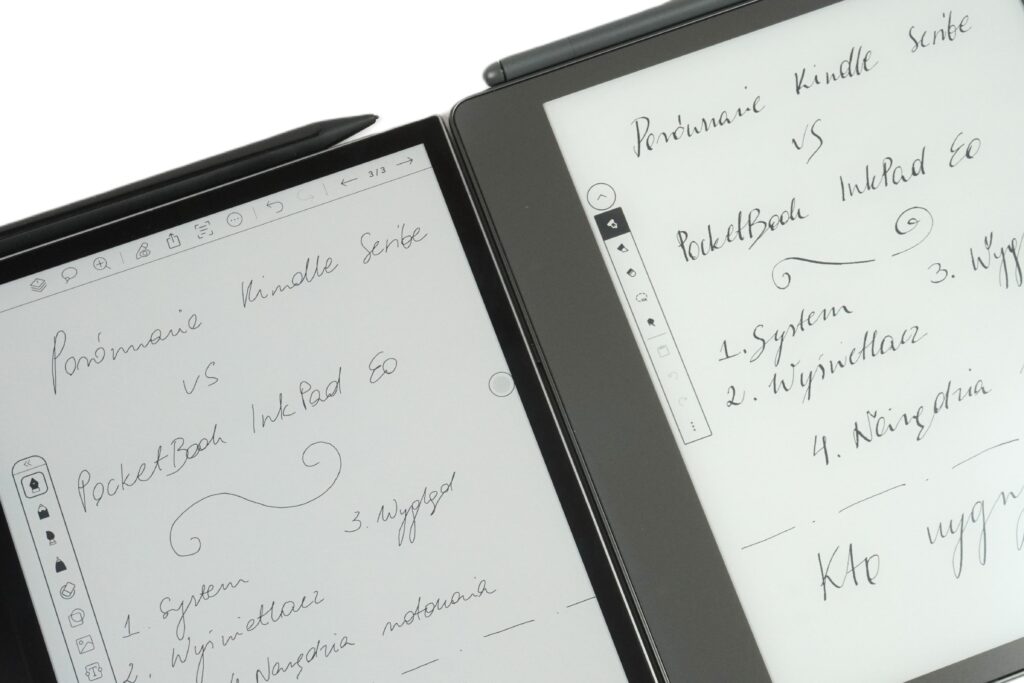 3/3
Porównanie Kindle Scribe
vs
PocketBook InkPad Eo
3. Wygląd
1. System
2. Wyświetlacz
4. Narzędzia notowania
Porównanie Kindle Scribe
vs
PocketBook InkPad Eo
3.
1. System
2. Wyświetlacz
4. Narzędzia
Kto